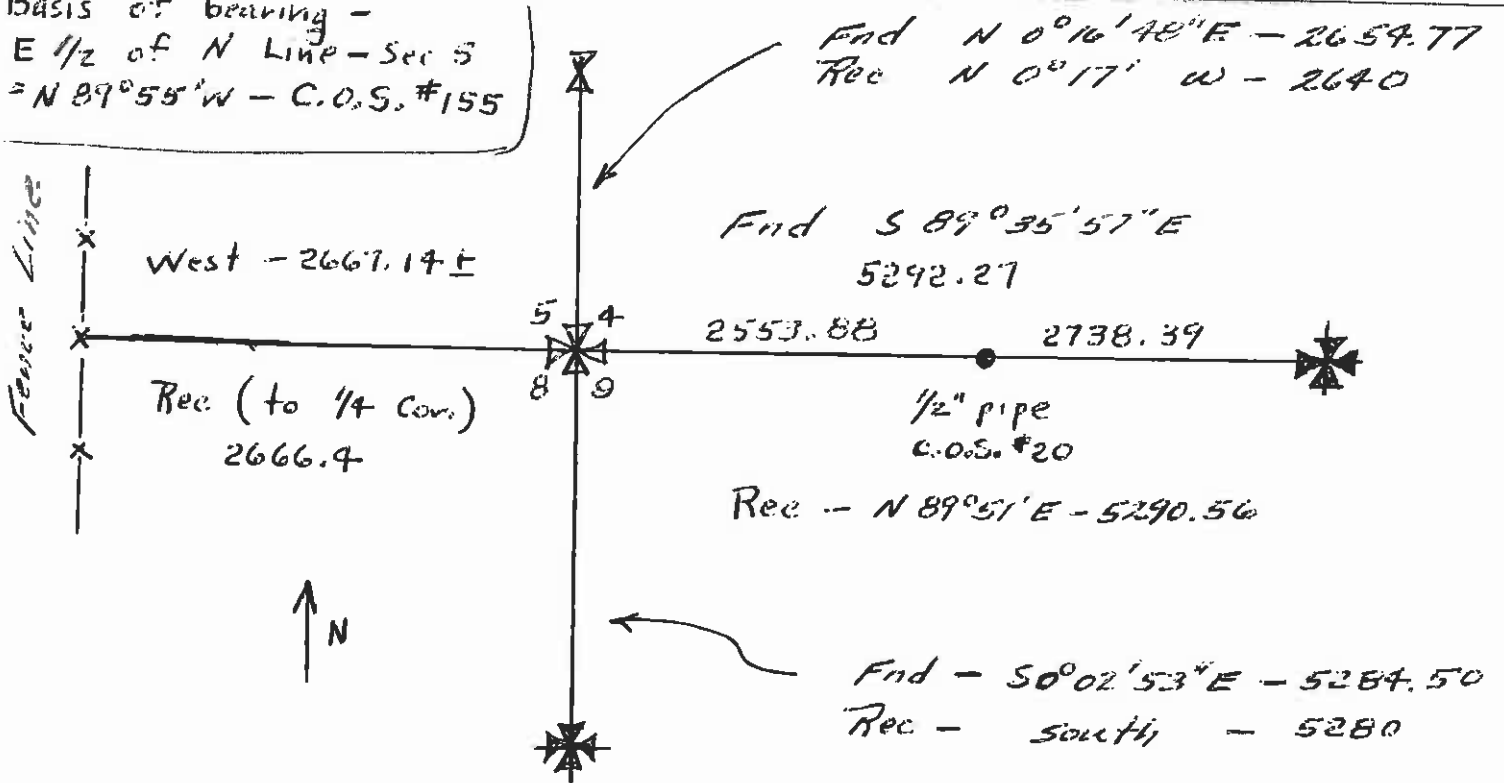 Basis of bearing -
E 1/2 of N Line - Sec 5
= N 89°55'W - C.O.S. #155
Fnd N 0°16'48"E - 2654.77
Rec N 0°17' W - 2640
Fence Line
West - 2667.14 ±
Fnd S 89°35'57"E
5292.27
5 4
2553.88 2738.39
8 9
Rec (to 1/4 Cor.)
2666.4
1/2" pipe
C.O.S. #20
Rec - N 89°51'E - 5290.56
N
Fnd - S0°02'53"E - 5284.50
Rec - South - 5280